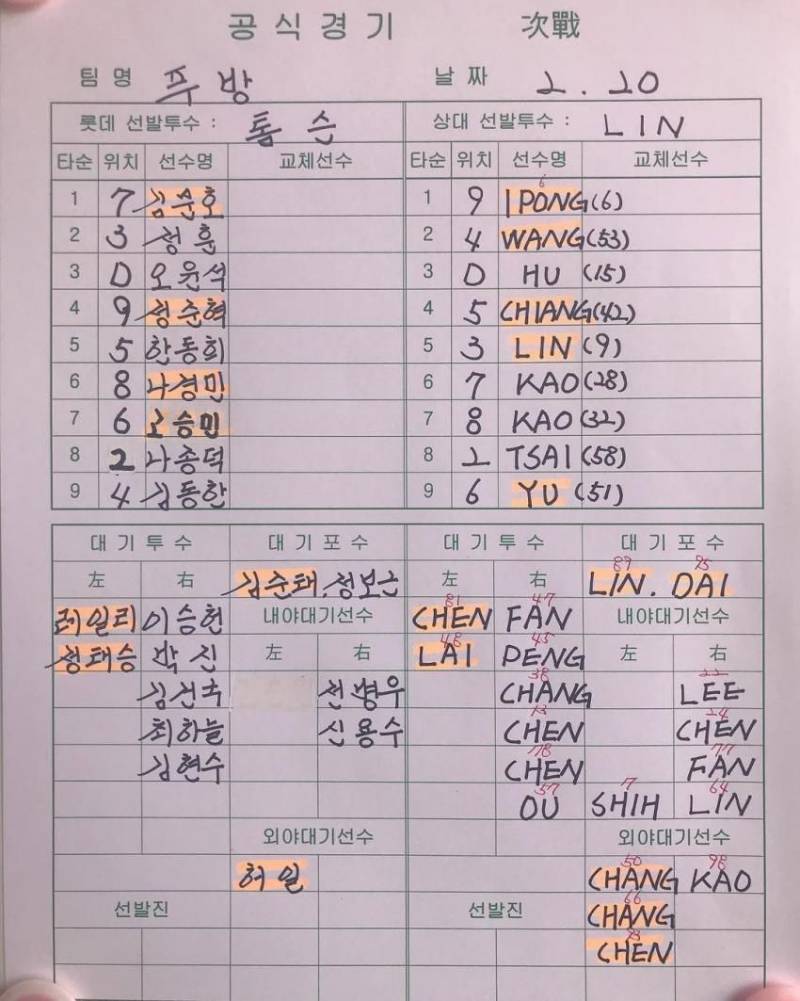 공식경기 次戰
팀명 푸방 날짜 2.20
롯데 선발투수 : 톰슨 상대 선발투수 : LIN
타순 위치 선수명 교체선수 타순 위치 선수명 교체선수
1 7 김준호 1 9 IPONG(6) 6
2 3 정훈 2 4 WANG(53)
3 D 오윤석 3 D HU (15)
4 9 정준혁 4 5 CHIANG(42)
5 5 한동희 5 3 LIN (9)
6 8 나경민 6 7 KAO(28)
7 6 고승민 7 8 KAO(32)
8 2 나종덕 8 2 TSAI(58)
9 4 김동한 9 6 YU (51)
대기투수 대기포수 대기투수 대기포수
89 95
左 右 김준태, 정보근 左 右 LIN. DAI
81 47
레일리 이승헌 내야대기선수 CHEN FAN 내야대기선수
48 45
정태승 박진 左 右 LAI PENG 左 右
38 22
김건국 전병우 CHANG LEE
13 24
최하늘 신용수 CHEN CHEN
78 77
김현수 CHEN FAN
57 7 64
OU SHIH LIN
외야대기선수 외야대기선수
50 98
허일 CHANG KAO
66
선발진 선발진 CHANG
CHEN